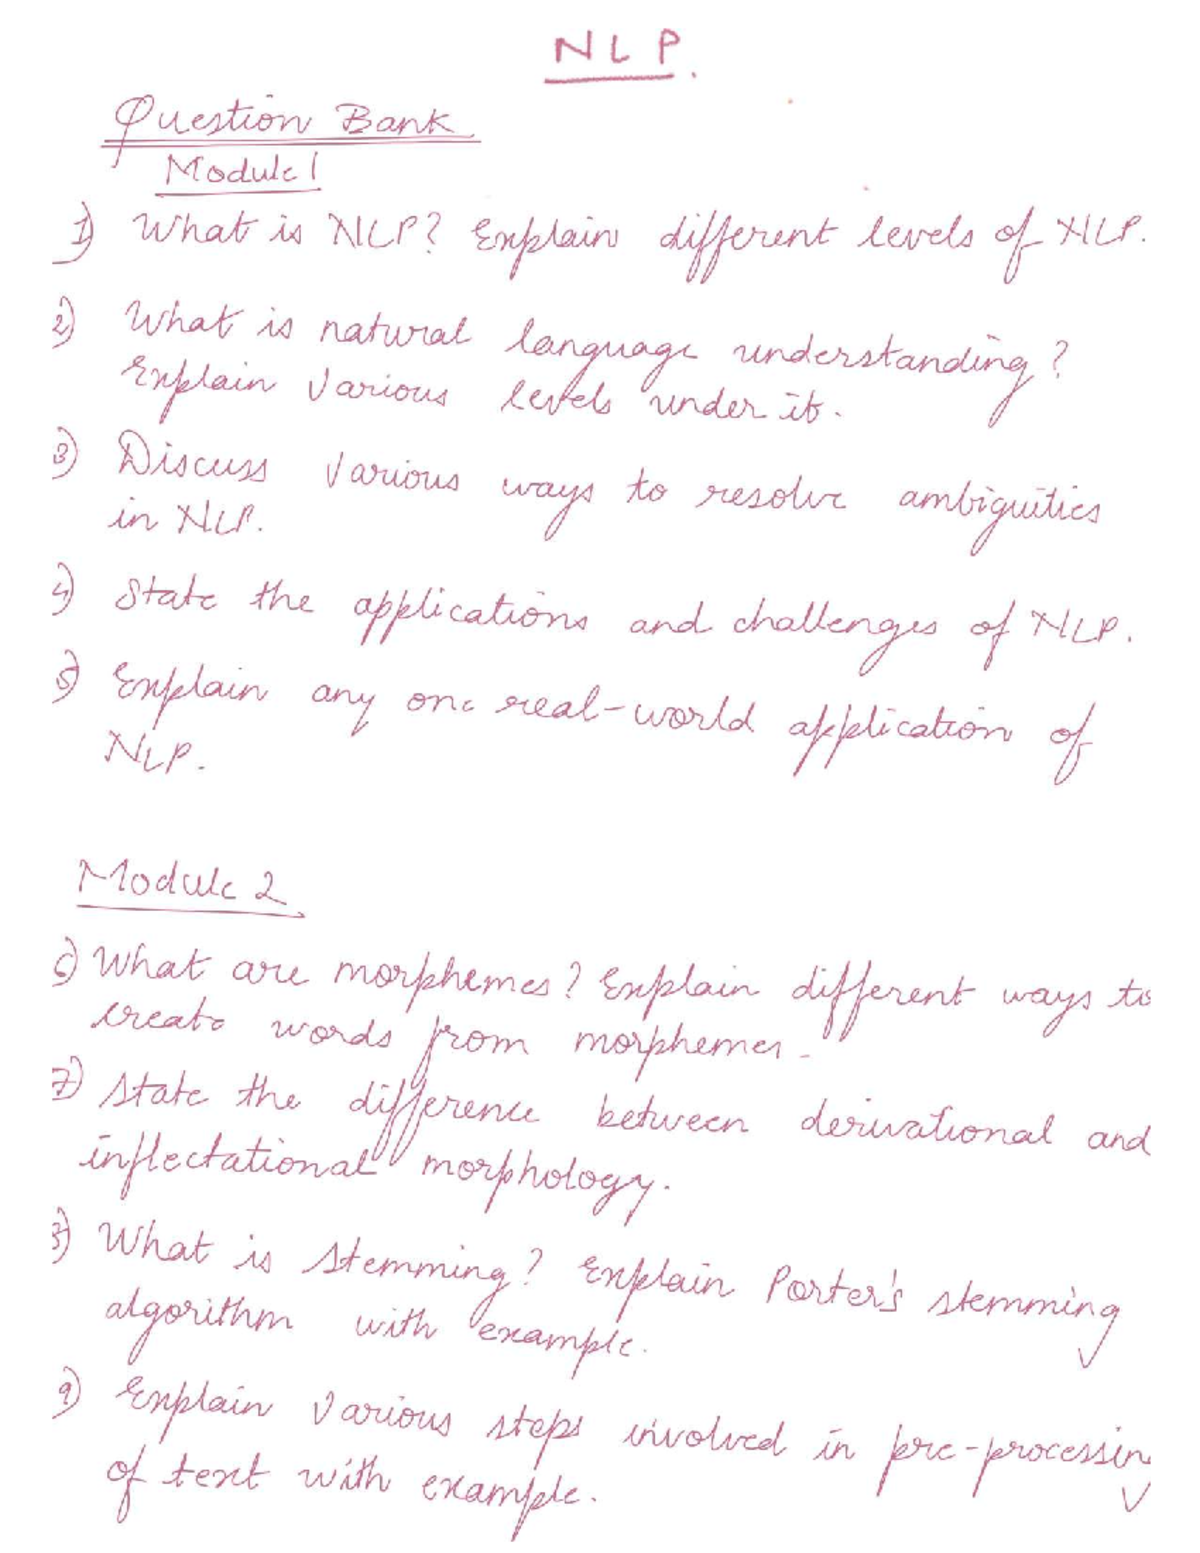 NLP.
Question Bank
Module 1
1) What is NLP? Explain different levels of NLP.
2) What is natural language understanding?
Explain various levels under it.
3) Discuss various ways to resolve ambiguities
in NLP.
4) State the applications and challenges of NLP.
5) Explain any one real-world application of
NLP.
Module 2
6) What are morphemes? Explain different ways to
create words from morphemes.
7) State the difference between derivational and
inflectational morphology.
8) What is stemming? Explain Porter's stemming
algorithm with example.
9) Explain various steps involved in pre-processing
of text with example.